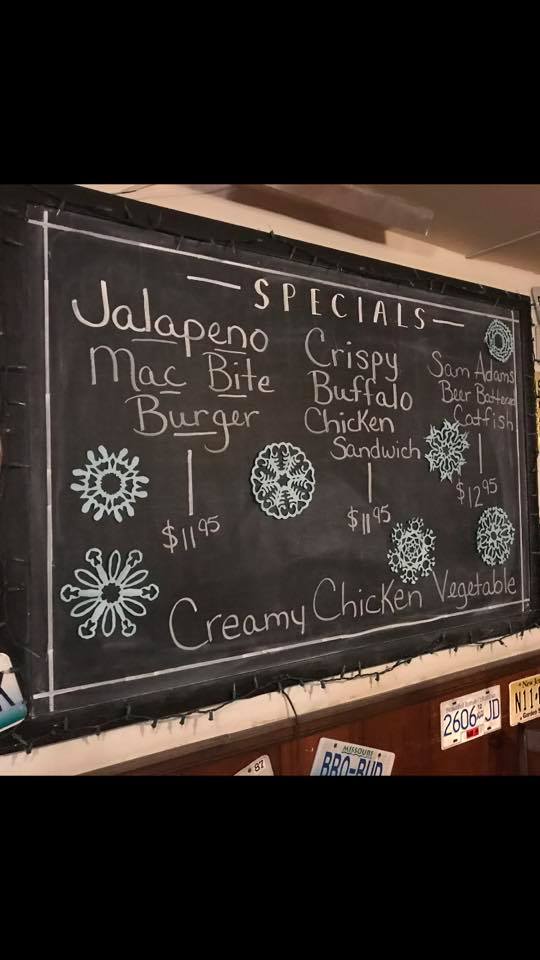 SPECIALS
Jalapeno
Mac Bite
Burger
$11.95
Crispy
Buffalo
Chicken
Sandwich
$11.95
Sam Adams
Beer Battered
Catfish
$12.95
Creamy Chicken Vegetable
87
MISSOURI
BBQ-BUD
2606 JD
New Jer
N11